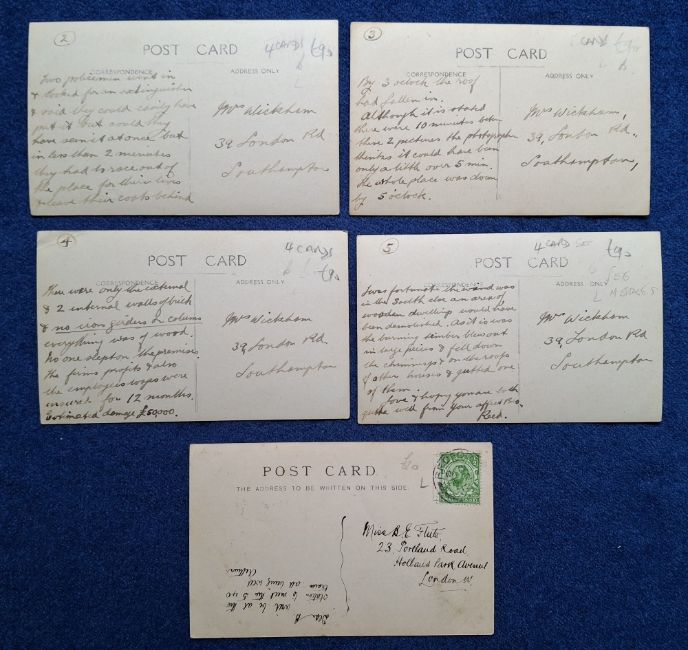 2
POST CARD
4 CARDS
£90
CORRESPONDENCE
ADDRESS ONLY
Two policemen went in
& looked for an extinguisher
& said they could easily have
put it out could they
have seen it at once, but
in less than 2 minutes
they had to race out of
the place for their lives
& leave their coats behind
Mrs Wickham
39, London Rd
Southampton
3
POST CARD
CARDS
£90
CORRESPONDENCE
ADDRESS ONLY
By 3 oclock the roof
had fallen in.
Although it is stated
there were 10 minutes betwn
these 2 pictures the photographer
thinks it could have been
only a little over 5 min.
the whole place was down
by 5 o'clock.
Mrs Wickham,
39, London Rd.,
Southampton,
4
POST CARD
4 CARDS
£90
CORRESPONDENCE
ADDRESS ONLY
There were only the external
& 2 internal walls of brick
& no iron girders or columns
everything was of wood.
No one slept on the premises,
the firms profits & also
the employees wages were
insured for 12 months.
Estimated damage £50,000.
Mrs Wickham
39, London Rd.
Southampton
5
POST CARD
4 CARDS
£90
L
CORRESPONDENCE
ADDRESS ONLY
It was fortunate the wind was
in the South else an area of
wooden dwellings would have
been demolished. As it is was
the burning timber blew out
in large pieces & fell down
the chimneys & on the roofs
of other houses & gutted one
of them.
Love & hoping you are both
quite well from your affect Bro.
Mrs Wickham
39, London Rd
Southampton
POST CARD
THE ADDRESS TO BE WRITTEN ON THIS SIDE.
L
Miss B. E.
23, Portland Road
Holland Park Avenue
London W
Dear B
will be at the
station to meet the 5.40
train all being well